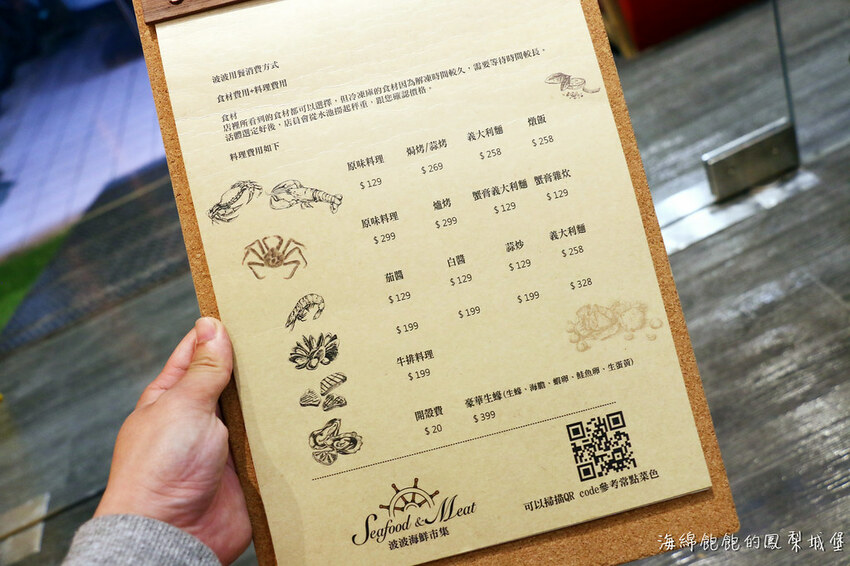 波波用餐消費方式
食材費用+料理費用
食材
店裡所看到的食材都可以選擇，但冷凍庫的食材因為解凍時間較久，需要等待時間較長。
活體選定好後，店員會從水池撈起秤重，跟您確認價格。
料理費用如下
原味料理 焗烤/蒜烤 義大利麵 燉飯
$129 $269 $258 $258
原味料理 爐烤 蟹膏義大利麵 蟹膏雜炊
$299 $299 $129 $129
茄醬 白醬 蒜炒 義大利麵
$129 $129 $129 $258
$199 $199 $199 $328
牛排料理
$199
開殼費 豪華生蠔(生蠔、海膽、蝦卵、鮭魚卵、生蛋黃)
$20 $399
Seafood & Meat
波波海鮮市集
可以掃描QR code參考常點菜色
海綿飽飽的鳳梨城堡